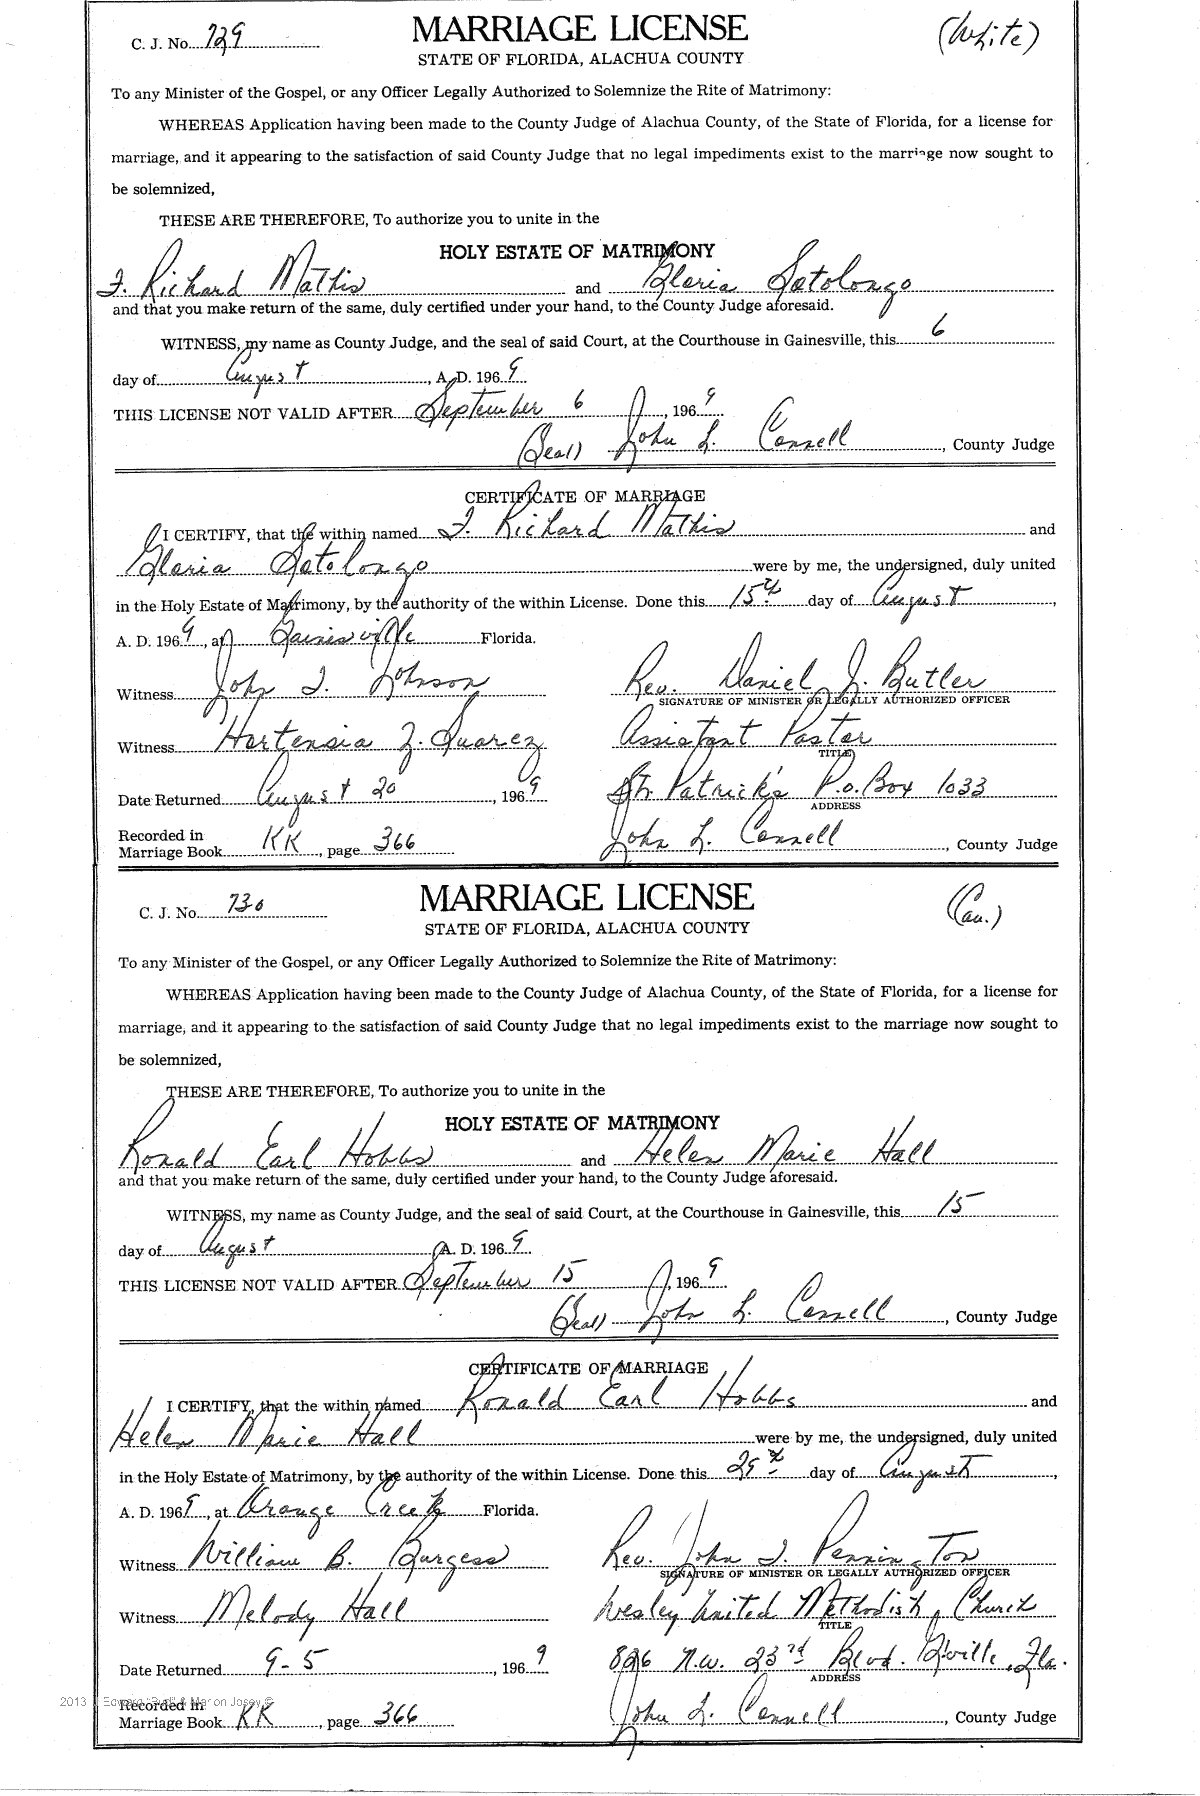 C. J. No. 729
MARRIAGE LICENSE
(White)
STATE OF FLORIDA, ALACHUA COUNTY
To any Minister of the Gospel, or any Officer Legally Authorized to Solemnize the Rite of Matrimony:
WHEREAS Application having been made to the County Judge of Alachua County, of the State of Florida, for a license for
marriage, and it appearing to the satisfaction of said County Judge that no legal impediments exist to the marriage now sought to
be solemnized,
THESE ARE THEREFORE, To authorize you to unite in the
HOLY ESTATE OF MATRIMONY
F. Richard Mathis and Gloria Sotolongo
and that you make return of the same, duly certified under your hand, to the County Judge aforesaid.
WITNESS, my name as County Judge, and the seal of said Court, at the Courthouse in Gainesville, this 6
day of August, A. D. 1969
THIS LICENSE NOT VALID AFTER September 6, 1969
(Seal) John L. Connell, County Judge
CERTIFICATE OF MARRIAGE
I CERTIFY, that the within named F. Richard Mathis and
Gloria Sotolongo were by me, the undersigned, duly united
in the Holy Estate of Matrimony, by the authority of the within License. Done this 15th day of August,
A. D. 1969, at Gainesville Florida.
Witness John T. Johnson Rev. Daniel J. Butler
SIGNATURE OF MINISTER OR LEGALLY AUTHORIZED OFFICER
Witness Hortensia Z. Suarez Assistant Pastor
TITLE
Date Returned August 20, 1969 St. Patrick's P.O. Box 1033
ADDRESS
Recorded in
Marriage Book KK, page 366 John L. Connell, County Judge
C. J. No. 730
MARRIAGE LICENSE
(Cau.)
STATE OF FLORIDA, ALACHUA COUNTY
To any Minister of the Gospel, or any Officer Legally Authorized to Solemnize the Rite of Matrimony:
WHEREAS Application having been made to the County Judge of Alachua County, of the State of Florida, for a license for
marriage, and it appearing to the satisfaction of said County Judge that no legal impediments exist to the marriage now sought to
be solemnized,
THESE ARE THEREFORE, To authorize you to unite in the
HOLY ESTATE OF MATRIMONY
Ronald Earl Hobbs and Helen Marie Hall
and that you make return of the same, duly certified under your hand, to the County Judge aforesaid.
WITNESS, my name as County Judge, and the seal of said Court, at the Courthouse in Gainesville, this 15
day of August A. D. 1969
THIS LICENSE NOT VALID AFTER September 15, 1969
(Seal) John L. Connell, County Judge
CERTIFICATE OF MARRIAGE
I CERTIFY, that the within named Ronald Earl Hobbs and
Helen Marie Hall were by me, the undersigned, duly united
in the Holy Estate of Matrimony, by the authority of the within License. Done this 29th day of August,
A. D. 1969, at Orange Creek Florida.
Witness William B. Burgess Rev. John I. Pennington
SIGNATURE OF MINISTER OR LEGALLY AUTHORIZED OFFICER
Witness Melody Hall Wesley United Methodist Church
TITLE
Date Returned 9-5, 1969 826 N.W. 23rd Blvd. G'ville, Fla.
ADDRESS
Recorded in
Marriage Book KK, page 366 John L. Connell, County Judge